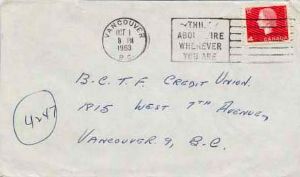 VANCOUVER
OCT 1
8 PM
1963
B.C.
THINK
ABOUT FIRE
WHEREVER
YOU ARE
CANADA
B.C.T.F. CREDIT UNION.
1815 WEST 7TH AVENUE,
VANCOUVER 9, B.C.
4247